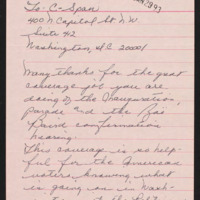 1993
To: C-Span
400 N Capitol St N W
Suite 412
Washington, DC 20001
Many thanks for the great
coverage you are
doing of the Inauguration,
parade and the
Baird confirmation
hearing.
This coverage is so help-
ful for the American
voters, knowing what
is going on in Wash-